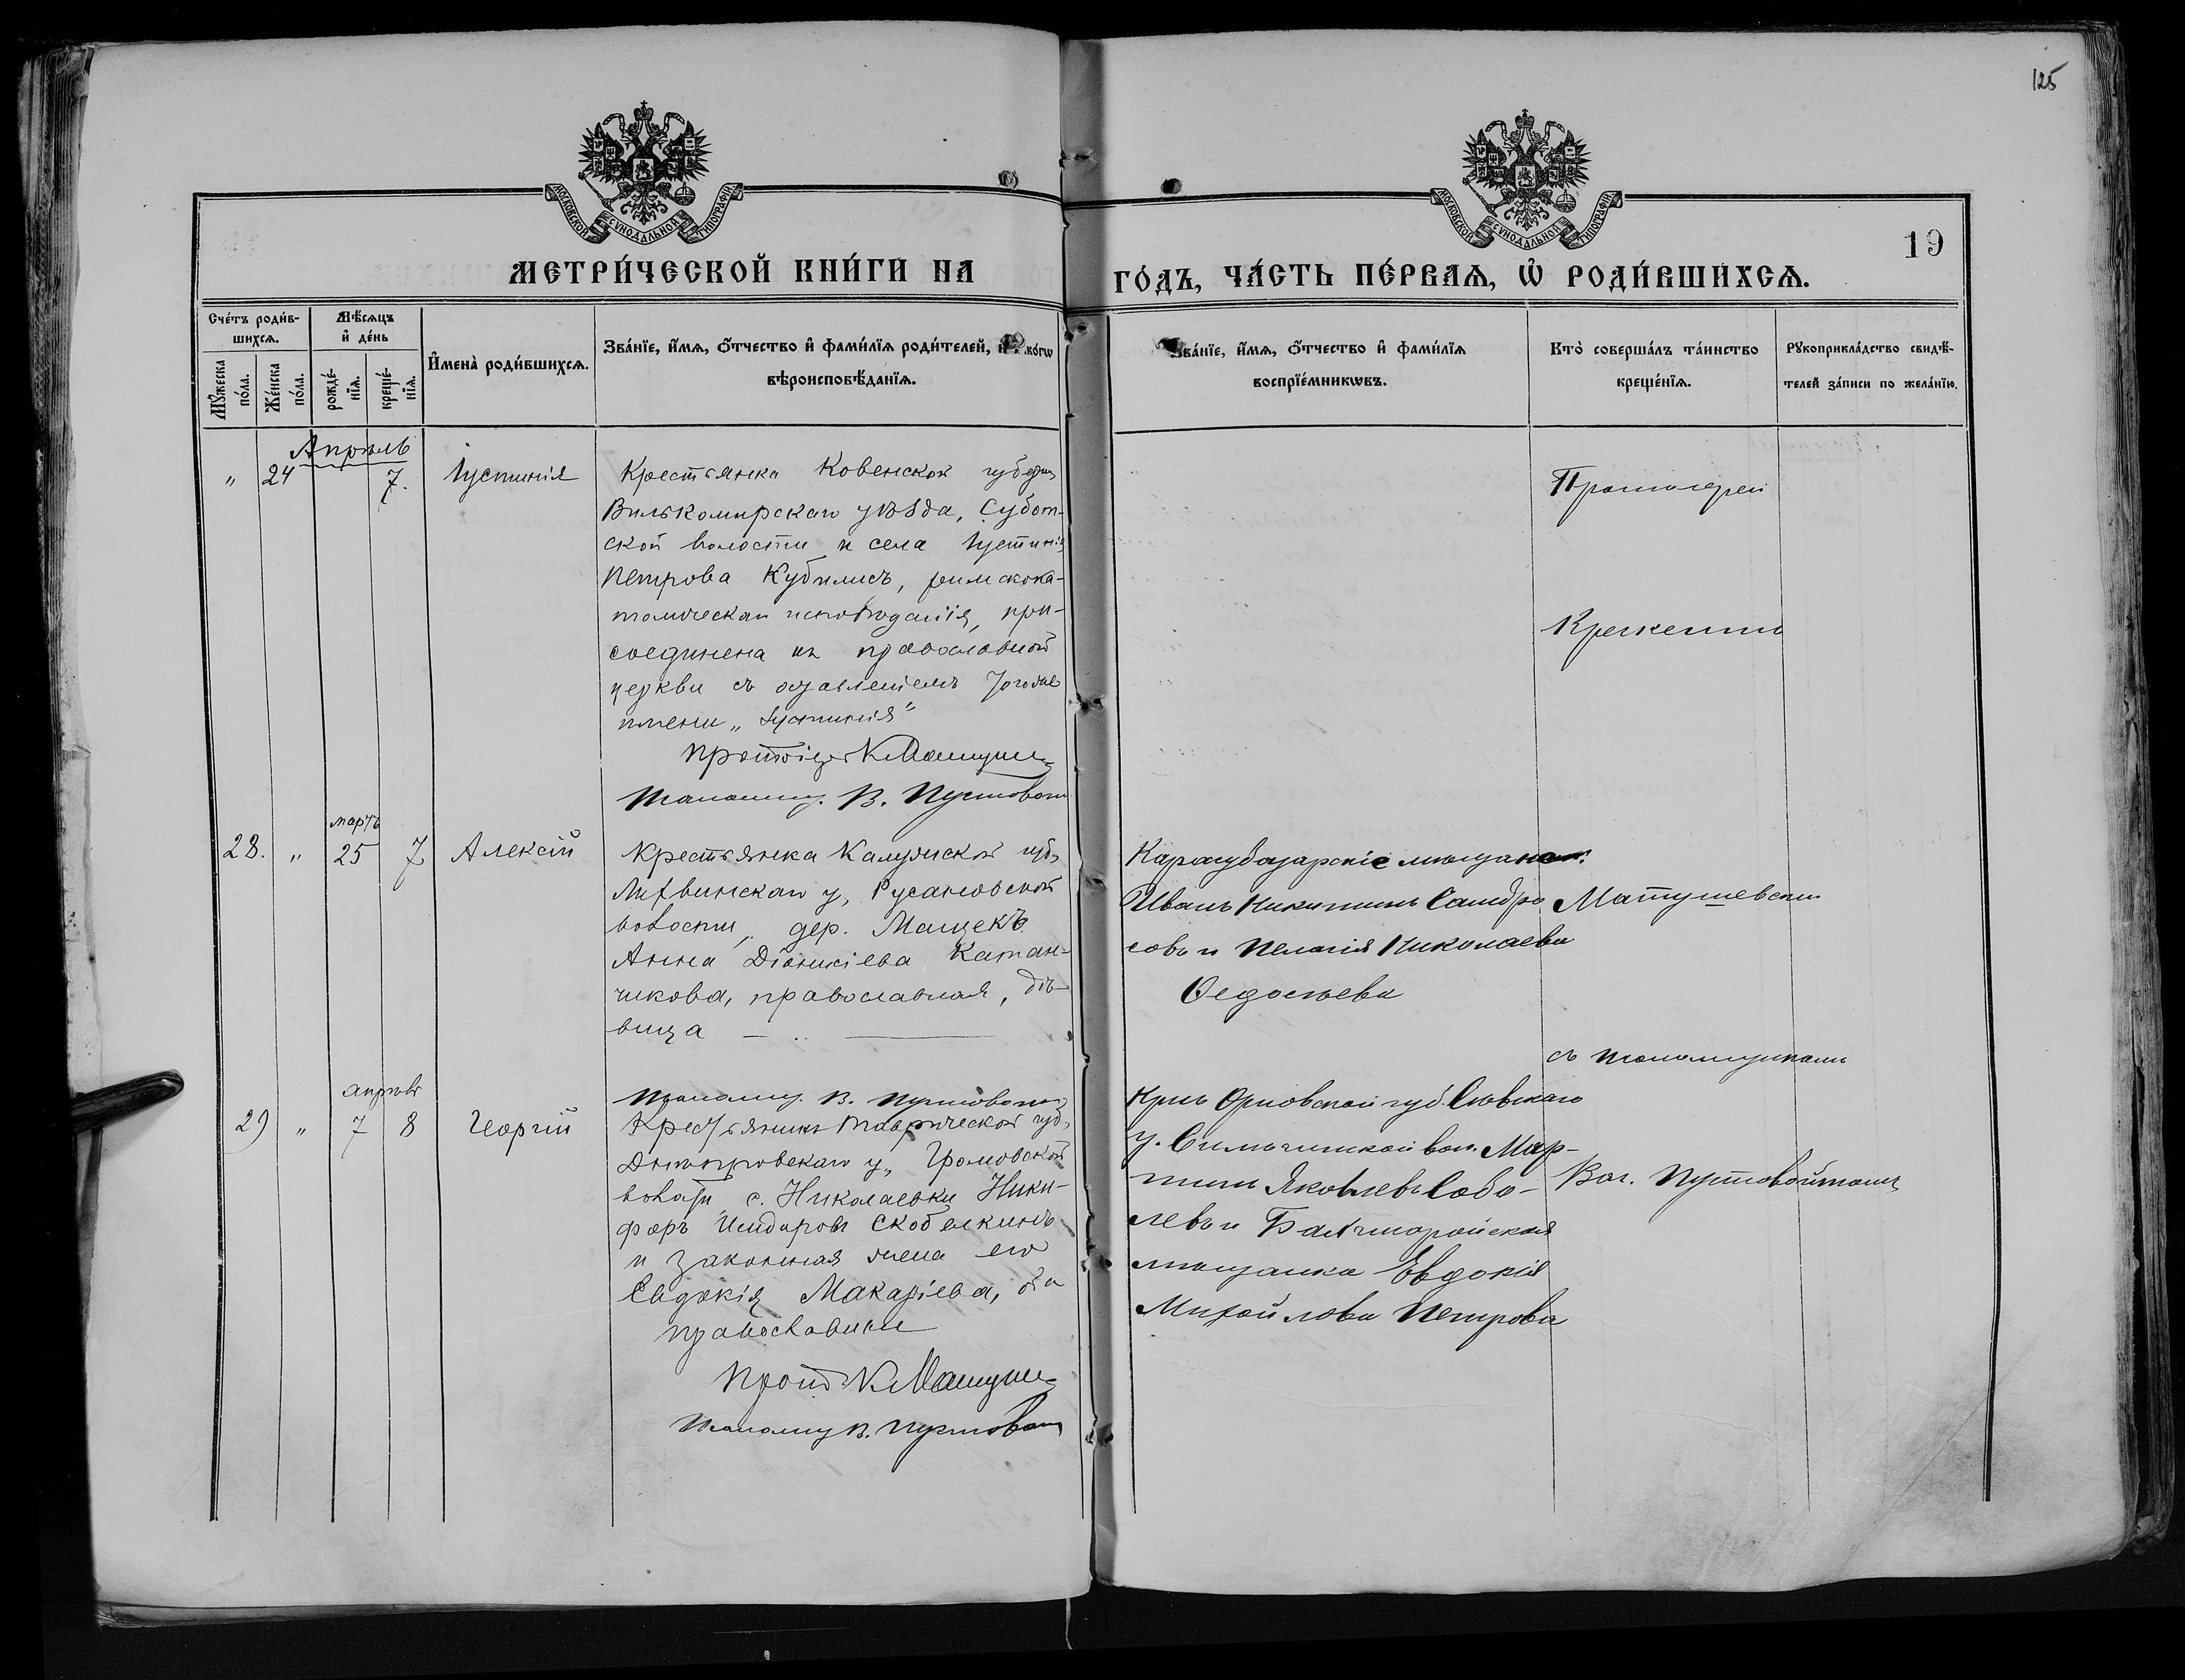 125
МОСКОВСКОЙ СѴНОДАЛЬНОЙ ТИПОГРАФІИ
МОСКОВСКОЙ СѴНОДАЛЬНОЙ ТИПОГРАФІИ
19
МЕТРИ́ЧЕСКОЙ КНИ́ГИ НА
ГО́ДЪ, ЧА́СТЬ ПЕ́РВАѦ, Ѡ҆ РОДИ́ВШИХСѦ.
Сче́тъ роди́в-
шихсѧ.
Мꙋ́жеска
по́ла.
Же́нска
по́ла.
Мѣ́сѧцъ
и҆ де́нь
рожде́-
нїѧ.
креще́-
нїѧ.
И҆мена̀ роди́вшихсѧ.
Зва́нїе, и҆́мѧ, ѻ҆́тчество и҆ фами́лїѧ роди́телей, и҆ ко́гѡ
вѣроисповѣ́данїѧ.
Зва́нїе, и҆́мѧ, ѻ҆́тчество и҆ фами́лїѧ
воспрїе́мникѡвъ.
Кто̀ соверша́лъ та́инство
креще́нїѧ.
Рꙋкоприкла́дство свидѣ́-
телей за́писи по жела́нїю.
Апрѣль
" 24 7. Іустинія
Крестьянка Ковенской губерн
Вилькомирскаго уѣзда, Субот-
ской волости и села Іустинія
Петрова Кубилисъ, римскока-
толическаго исповѣданія, при-
соединена къ православной
церкви съ оставленіемъ того же
имени „Іустинія"
Протоіер К Матуше
Псаломщ. В. Пустовойт
Протоіерей
Крещенъ
мартъ
28. " 25 7 Алексій
Крестьянка Калужской губ.
Лихвинскаго у, Русановской
волости, дер. Мащекъ
Анна Діонисіева Катан-
чикова, православная, дѣ-
вица
Псаломщ. В. Пустовойт
Карасубазарскіе мѣщане:
Иванъ Никитинъ
и Пелагія Николаева
Ѳедосѣева
Матушевскій
съ псаломщикомъ
апрѣль
29 " 7 8 Георгій
Крестьянинъ Таврической губ,
Днѣпровскаго у, Громовской
волости с. Николаевки Ники-
форъ Исидоровъ Скобелкинъ
и законная жена его
Евдокія Макаріева, оба
православные
Прот К Матуше
Псаломщ В. Пустовойт
Орловской губ. Сѣвскаго
у. вол. Мар-
тинъ Яковлевъ Собо-
левъ и Бахчисарайская
мѣщанка Евдокія
Михайлова Петрова
Вас. Пустовойтомъ